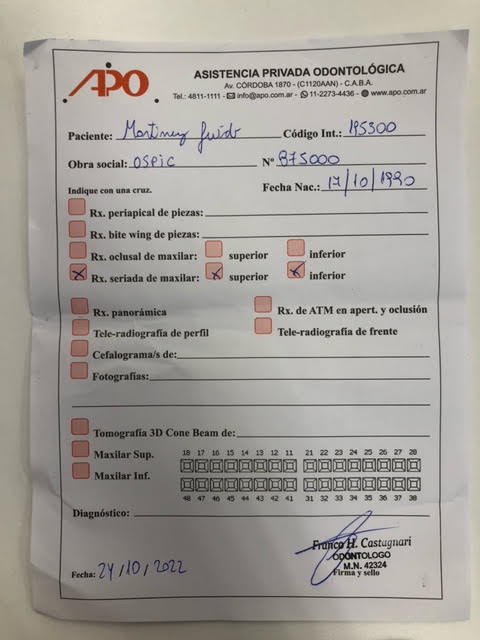 APO.
ASISTENCIA PRIVADA ODONTOLÓGICA
Av. CÓRDOBA 1870 - (C1120AAN) - C.A.B.A.
Tel.: 4811-1111 - info@apo.com.ar - 11-2273-4436 - www.apo.com.ar
Paciente: Martinez Guido Código Int.: 195300
Obra social: OSPIC Nº 875000
Indique con una cruz. Fecha Nac.: 17/10/1990
Rx. periapical de piezas:
Rx. bite wing de piezas:
Rx. oclusal de maxilar: superior inferior
X Rx. seriada de maxilar: X superior X inferior
Rx. panorámica Rx. de ATM en apert. y oclusión
Tele-radiografía de perfil Tele-radiografía de frente
Cefalograma/s de:
Fotografías:
Tomografía 3D Cone Beam de:
Maxilar Sup. 18 17 16 15 14 13 12 11 21 22 23 24 25 26 27 28
Maxilar Inf.
48 47 46 45 44 43 42 41 31 32 33 34 35 36 37 38
Diagnóstico:
Franco H. Castagnari
ODONTOLOGO
M.N. 42324
Fecha: 24/10/2022 Firma y sello